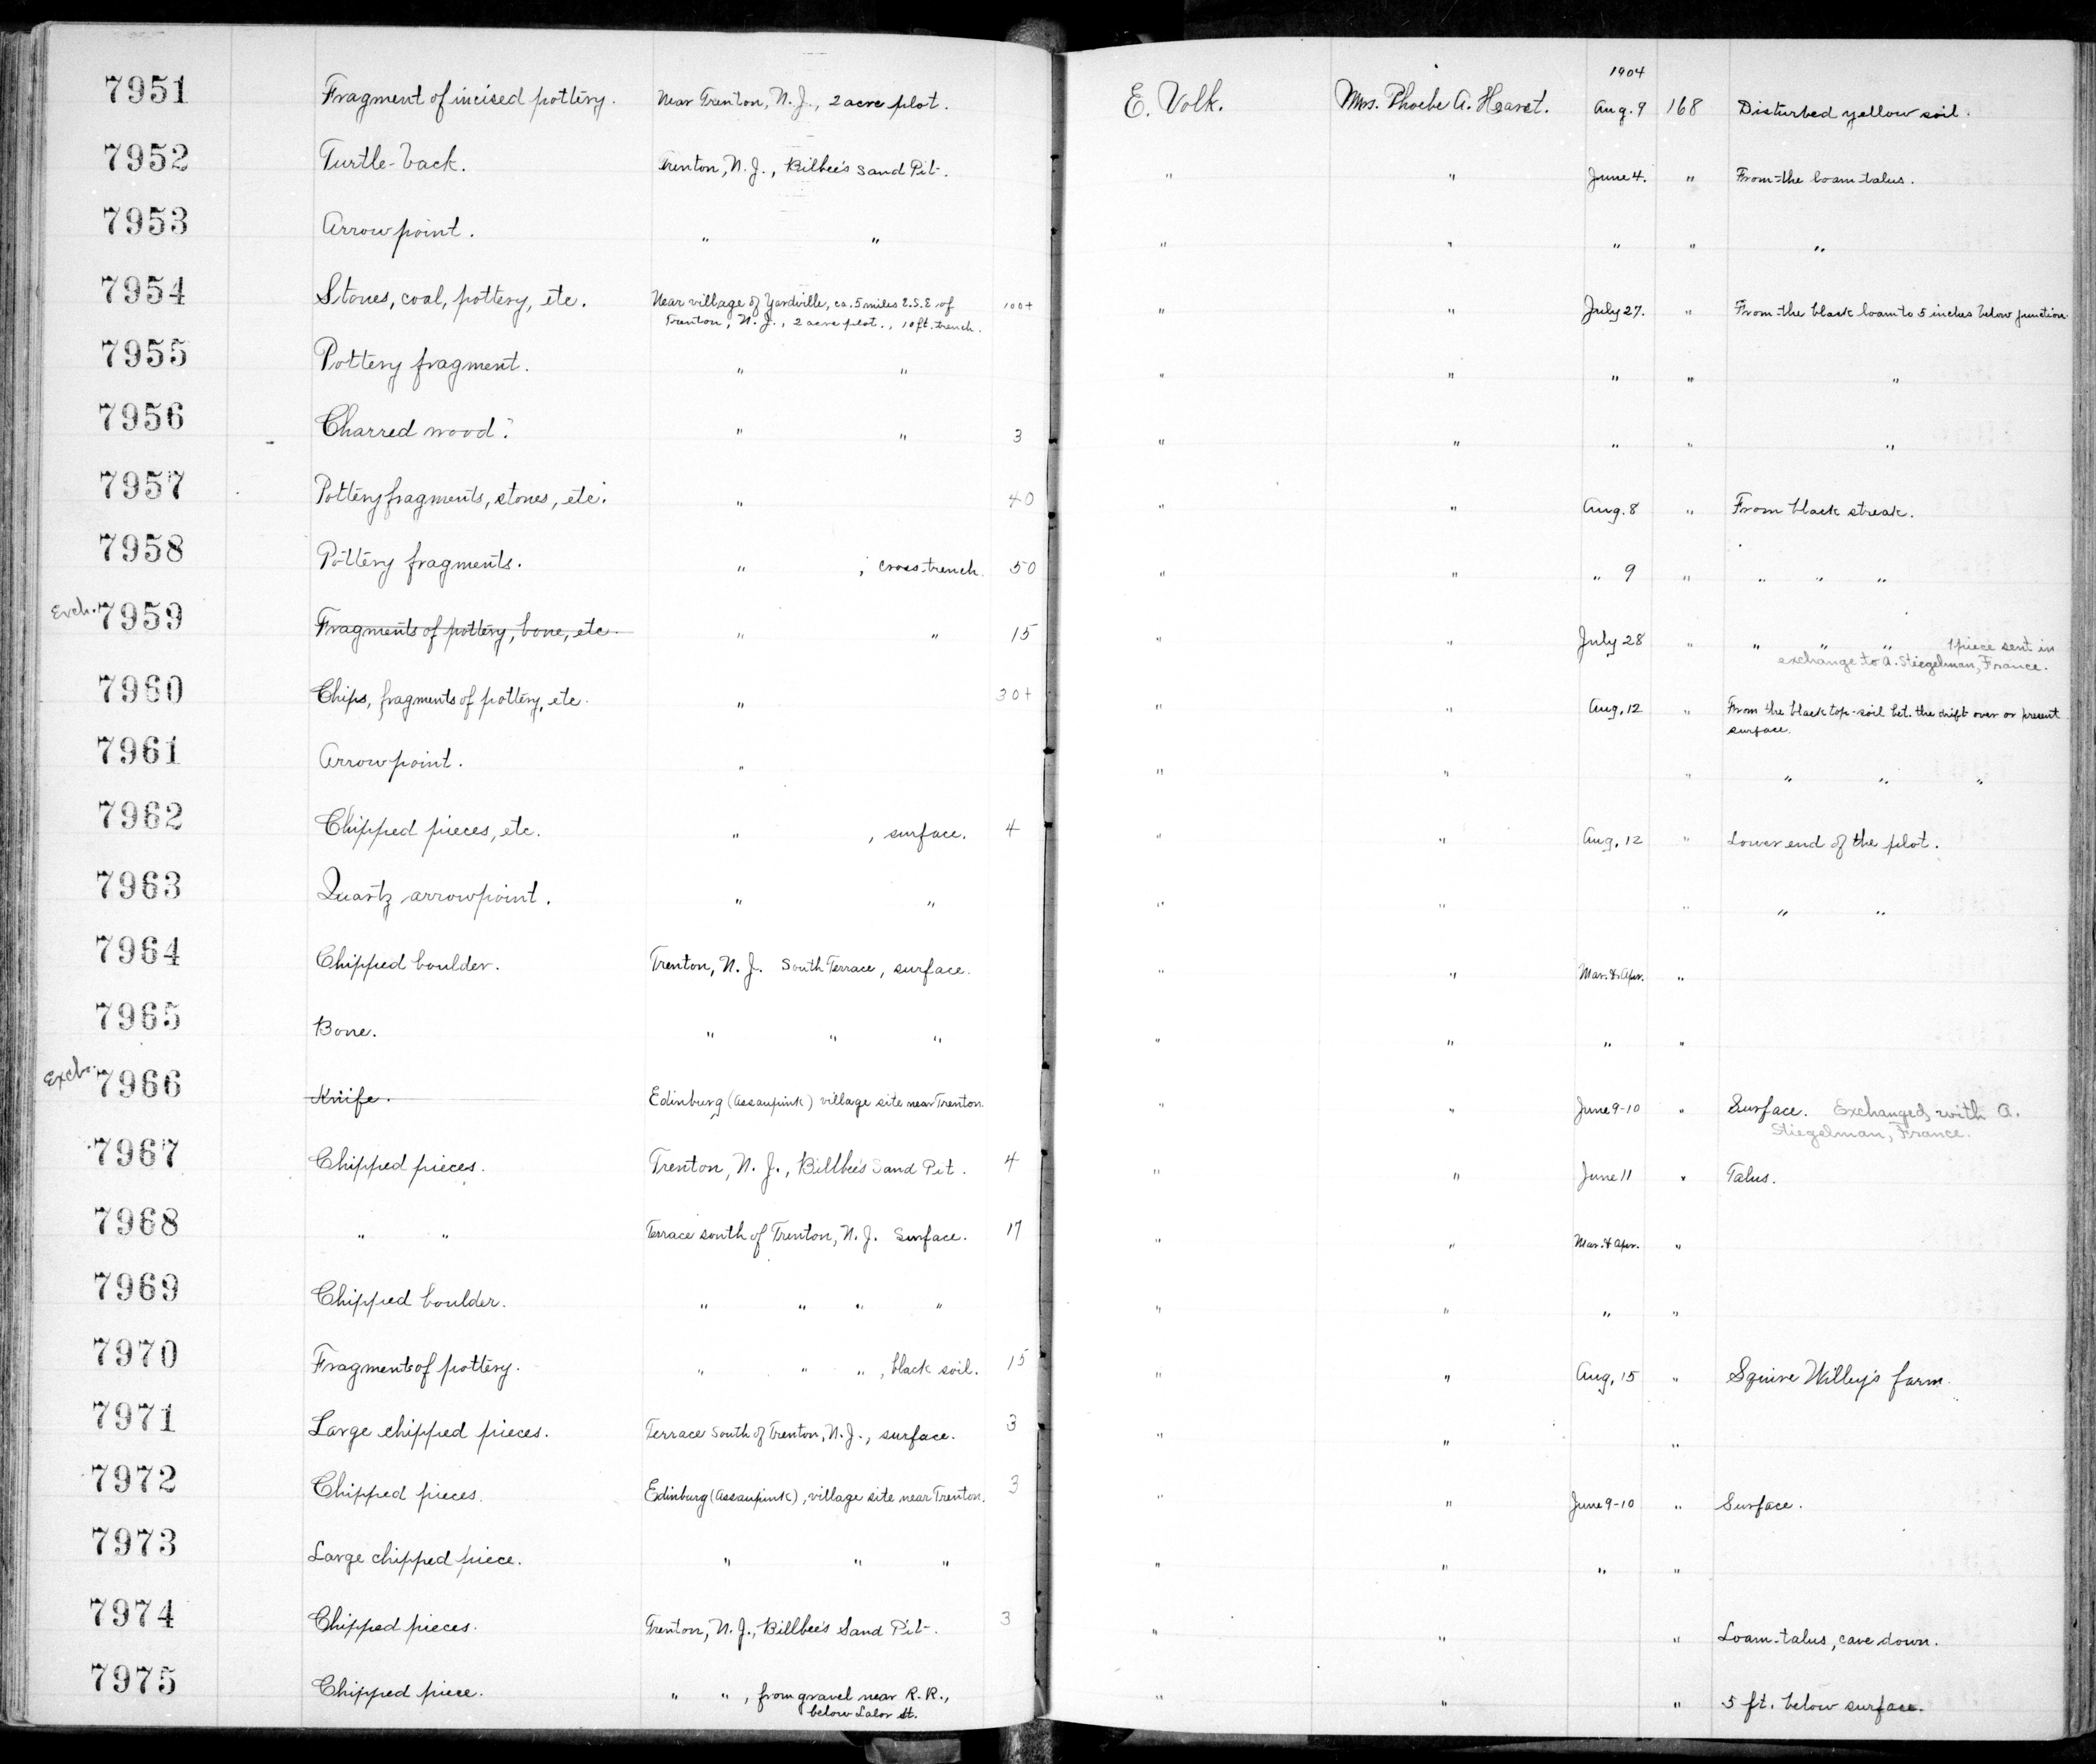 1904
7951 Fragment of incised pottery. Near Trenton, N.J., 2 acre plot. E. Volk. Mrs. Phoebe A. Hearst. Aug. 9 168 Disturbed yellow soil.
7952 Turtle-back. Trenton, N.J., Bilbee's Sand Pit. " " June 4. " From the loam talus.
7953 Arrowpoint. " " " " " " "
7954 Stones, coal, pottery, etc. Near village of Yardville, ca. 5 miles E.S.E of 100+ " " July 27. " From the black loam to 5 inches below junction.
Trenton, N.J., 2 acre plot., 10 ft. trench.
7955 Pottery fragment. " " " " " " "
7956 Charred wood. " " 3 " " " " "
7957 Pottery fragments, stones, etc. " 40 " " Aug. 8 " From black streak.
7958 Pottery fragments. " ; cross-trench. 50 " " " 9 " " " "
Exch. 7959 Fragments of pottery, bone, etc. " " 15 " " July 28 " " " " 1 piece sent in
exchange to A. Stiegelman, France.
7960 Chips, fragments of pottery, etc. " 30+ " " Aug. 12 " From the black top-soil bet. the drift over or present
surface.
7961 Arrowpoint. " " " " " " "
7962 Chipped pieces, etc. " , surface. 4 " " Aug. 12 " Lower end of the plot.
7963 Quartz arrowpoint. " " " " " " "
7964 Chipped boulder. Trenton, N.J. South Terrace, surface. " " Mar. & Apr. "
7965 Bone. " " " " " " "
Exch. 7966 Knife. Edinburg (Assaupink) village site near Trenton. " " June 9-10 " Surface. Exchanged with A.
Stiegelman, France.
7967 Chipped pieces. Trenton, N.J., Billbee's Sand Pit. 4 " " June 11 " Talus.
7968 " " Terrace south of Trenton, N.J. Surface. 17 " " Mar. & Apr. "
7969 Chipped boulder. " " " " " " " "
7970 Fragments of pottery. " " " , black soil. 15 " " Aug. 15 " Squire Willey's farm.
7971 Large chipped pieces. Terrace South of Trenton, N.J., surface. 3 " " "
7972 Chipped pieces. Edinburg (Assaupink), village site near Trenton. 3 " " June 9-10 " Surface.
7973 Large chipped piece. " " " " " " "
7974 Chipped pieces. Trenton, N.J., Billbee's Sand Pit. 3 " " " Loam-talus, cave down.
7975 Chipped piece. " " , from gravel near R.R., " " " 5 ft. below surface.
below Lalor St.